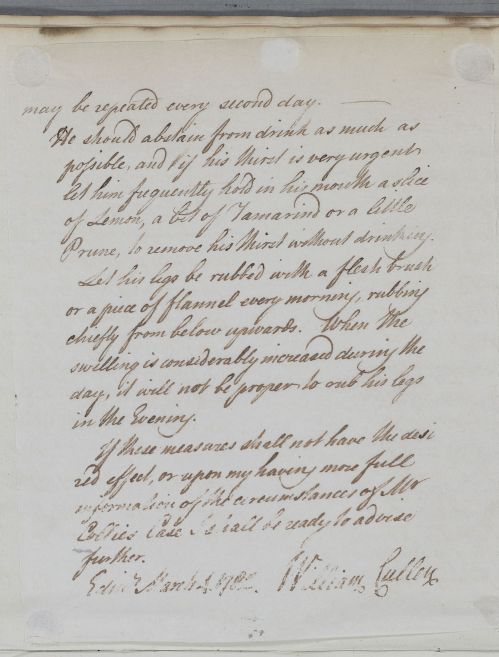 may be repeated every second day. —
He should abstain from drink as much as
possible, and if his thirst is very urgent
let him frequently hold in his mouth a slice
of Lemon, a bit of Tamarind or a little
Prune, to remove his thirst without drinking.
Let his legs be rubbed with a flesh brush
or a piece of flannel every morning, rubbing
chiefly from below upwards. When the
swelling is considerably increased during the
day, it will not be proper to rub his legs
in the Evening.
If these measures shall not have the desi
red effect, or upon my having more full
information of the circumstances of Mr
Case I shall be ready to advise
further.
Edinr March William Cullen